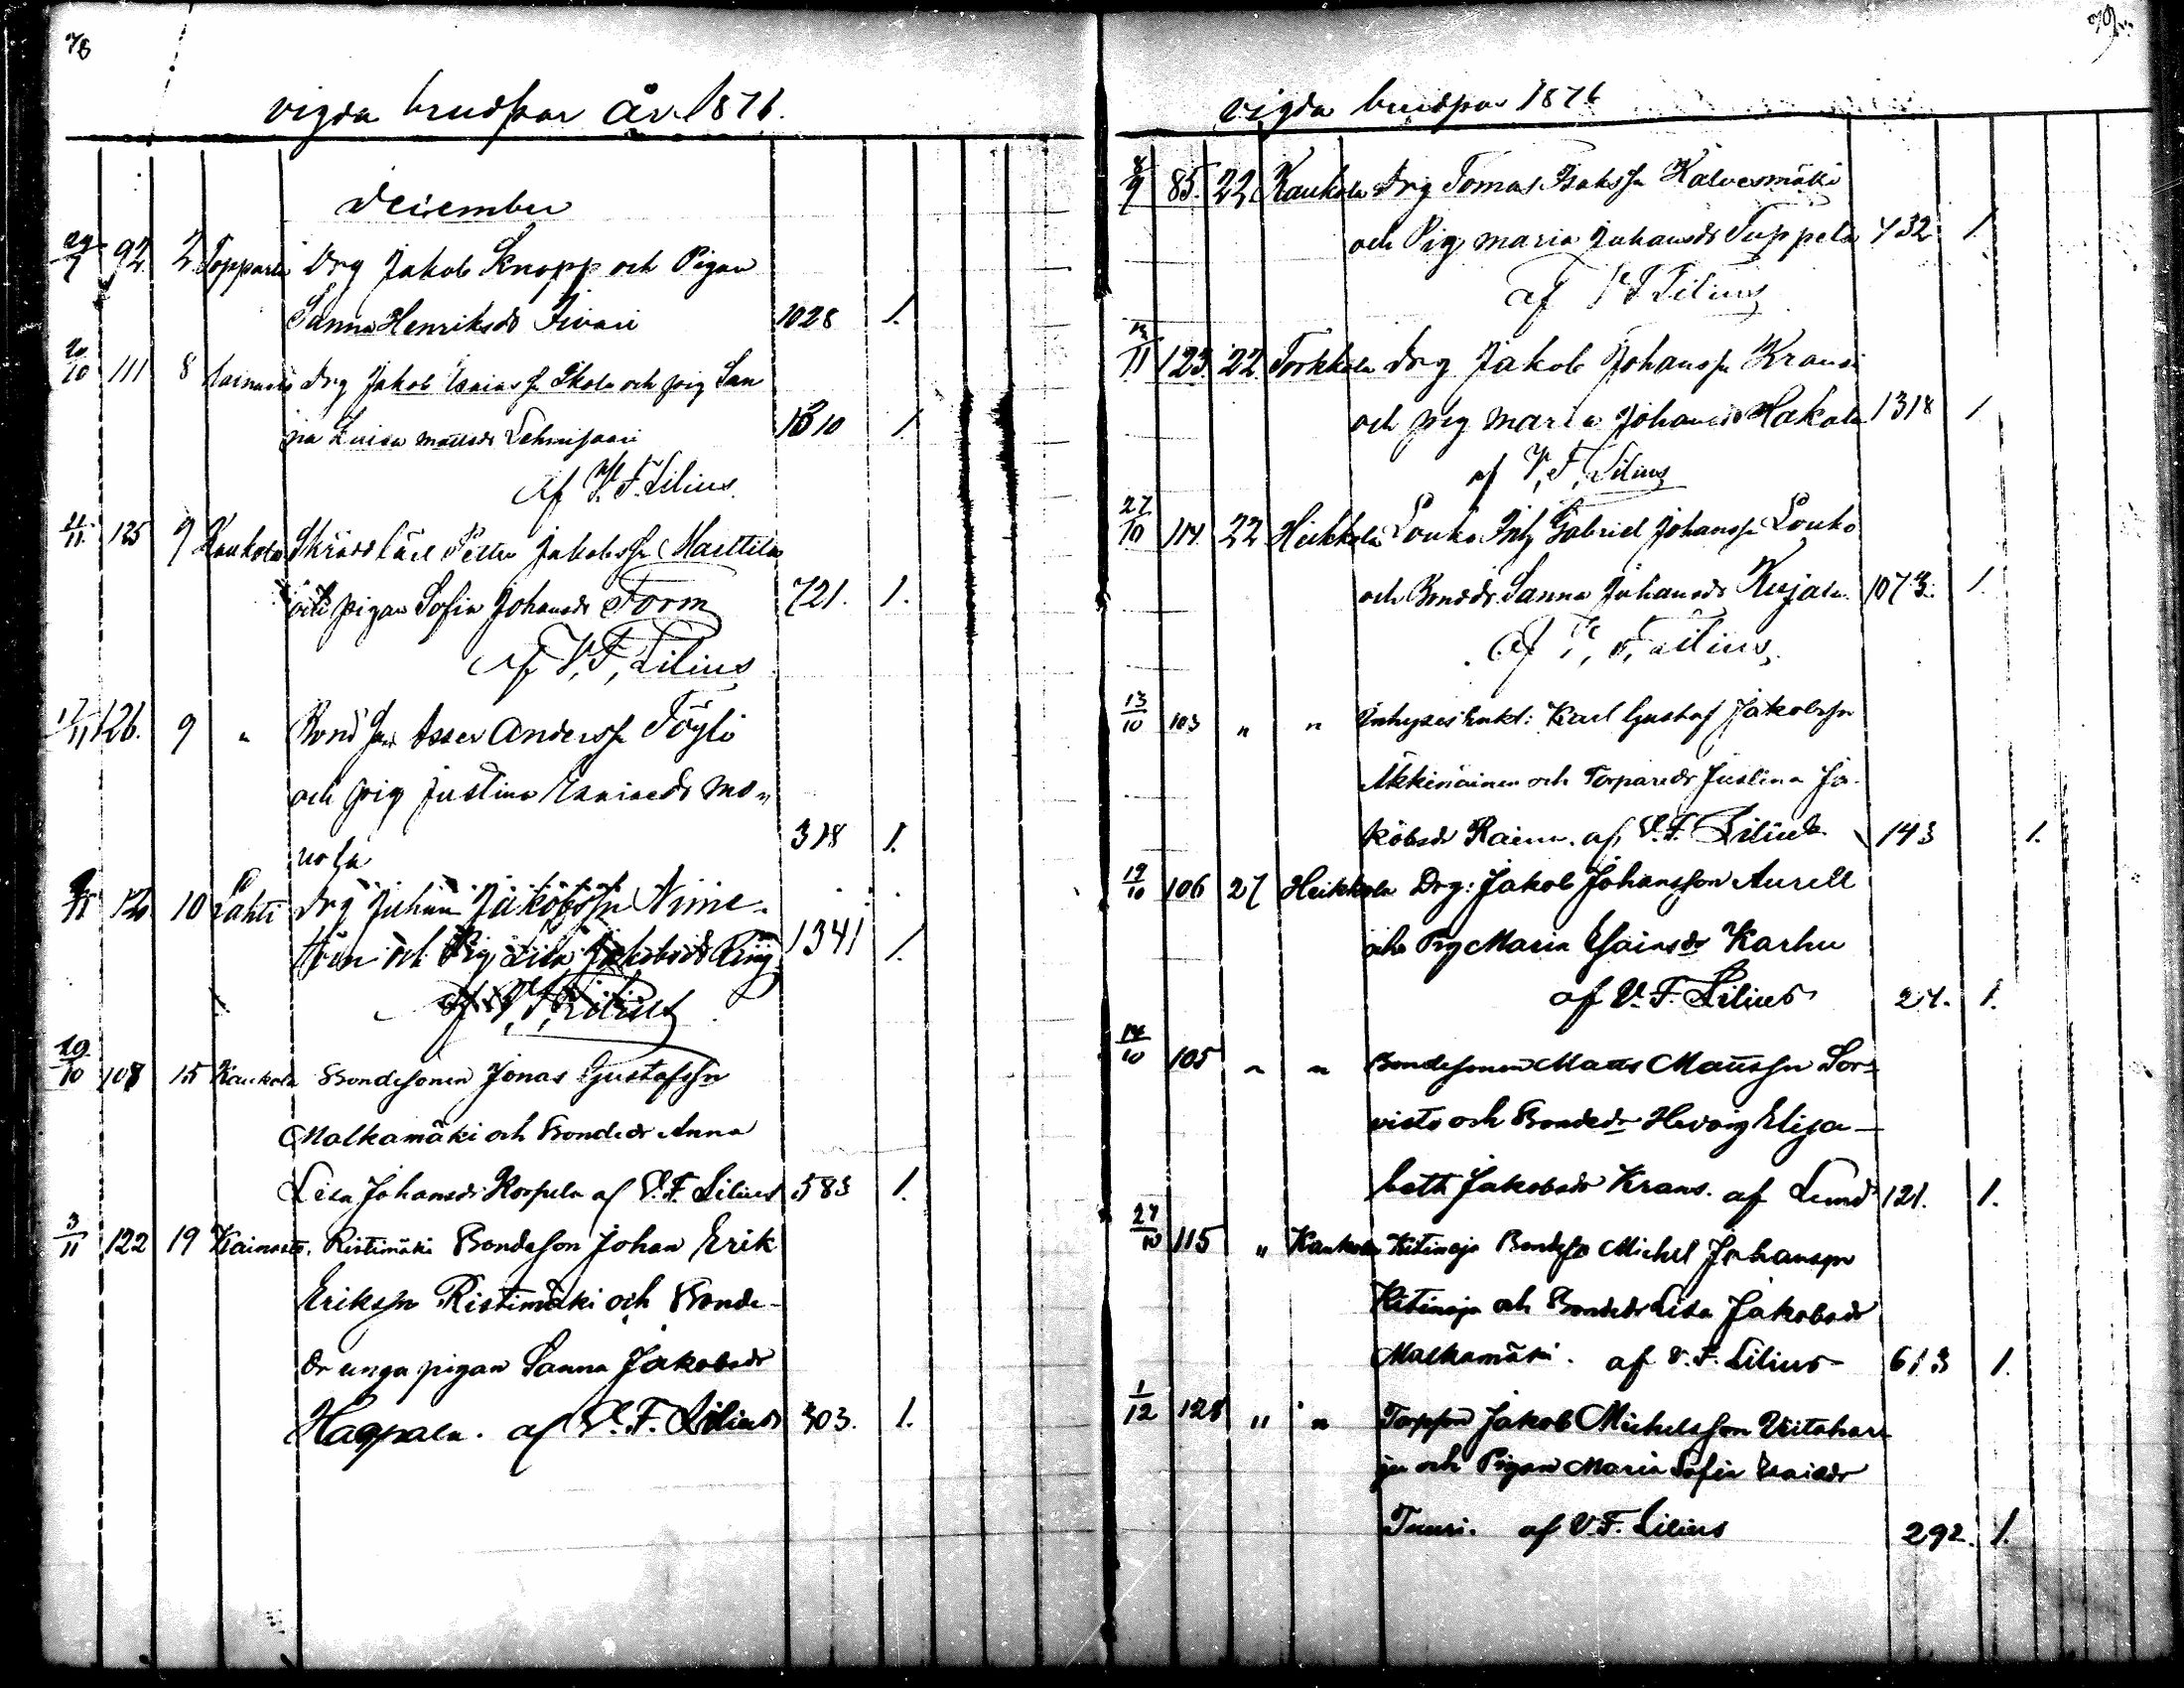 78
vigda brudpar år 1876.
December
29/7 92. 2 Drg Jakob Knopp och Pigan
Sanna Henriksdr Iivari 1028 1.
20/10 111 8 Drg Jakob Esaiass Skola och pig San
na Luisa Mattsdr 1310 1.
Af V. F. Lilius.
11/11. 125 9 Kaukola Petter Jakobss Marttila
och pigan Sofia Johansdr Form 721. 1.
Af V. F. Lilius
17/11 126. 9 " Bond sn Anderss Föyli
och pig Justina Esaiaedr Mo„
nola 318 1.
10 Lahti Drg Juhan Jakobssn Nime-
och Pig Lisa Jakobsdr 1341 1.
af V. F. Lilius
20/10 108 15 Kaukola Bondesonen Jonas Gustafssn
Malkamäki och Bondedr Anna
Lisa Johansdr Korpela af V. F. Lilius 583 1.
3/11 122 19 Kainasto. Ristimäki Bondeson Johan Erik
Erikssn Ristimäki och Bonde-
dr unga pigan Sanna Jakobsdr
af V. F. Lilius 303. 1.
79
vigda brudpar 1876
8/9 85. 22 Kaukola Drg Tomas Isakssn Kalvesmäki
och Pig Maria Juhansdr Tuppela 432 1.
af V F Lilius
11 123. 22 Torkkola Drg Jakob Johanssn Kransi
och pig Maria Johansdr Hakala 1318 1
af V, F, Lilius
27/10 114 22 Heikkola Louko Inh Gabriel Johanssn Louko
och Bondedr. Sanna Juhansdr Kujala. 1073. 1.
af V, F, Lilius,
13/10 103 " " Inhyses Enkl: Karl Gustaf Jakobssn
och Torparedr Justina Ja-
kobsdr af V. F. Lilius 143 1.
19/10 106 27 Heikkola Drg: Jakob Johansson Aurell
och Pig Maria Esaiasdr Karhu
af V. F. Lilius 27. 1.
14/10 105 " " Bondesonen Matts Mattssn Sor-
visto och Bondedr Hedvig Elisa-
beth Jakobsdr Krans. af Lund 121. 1.
27/10 115 " Kaukola Kitinoja Bondeso Michel Johanssn
Kitinoja och Bondedr Lisa Jakobsdr
Malkamäki. af V. F. Lilius 613 1.
1/12 128 " " Torpson Jakob Michelsson Viitahar
ju och Pigan Maria Sofia Esaiedr
Tuuri. af V. F. Lilius 292. 1.